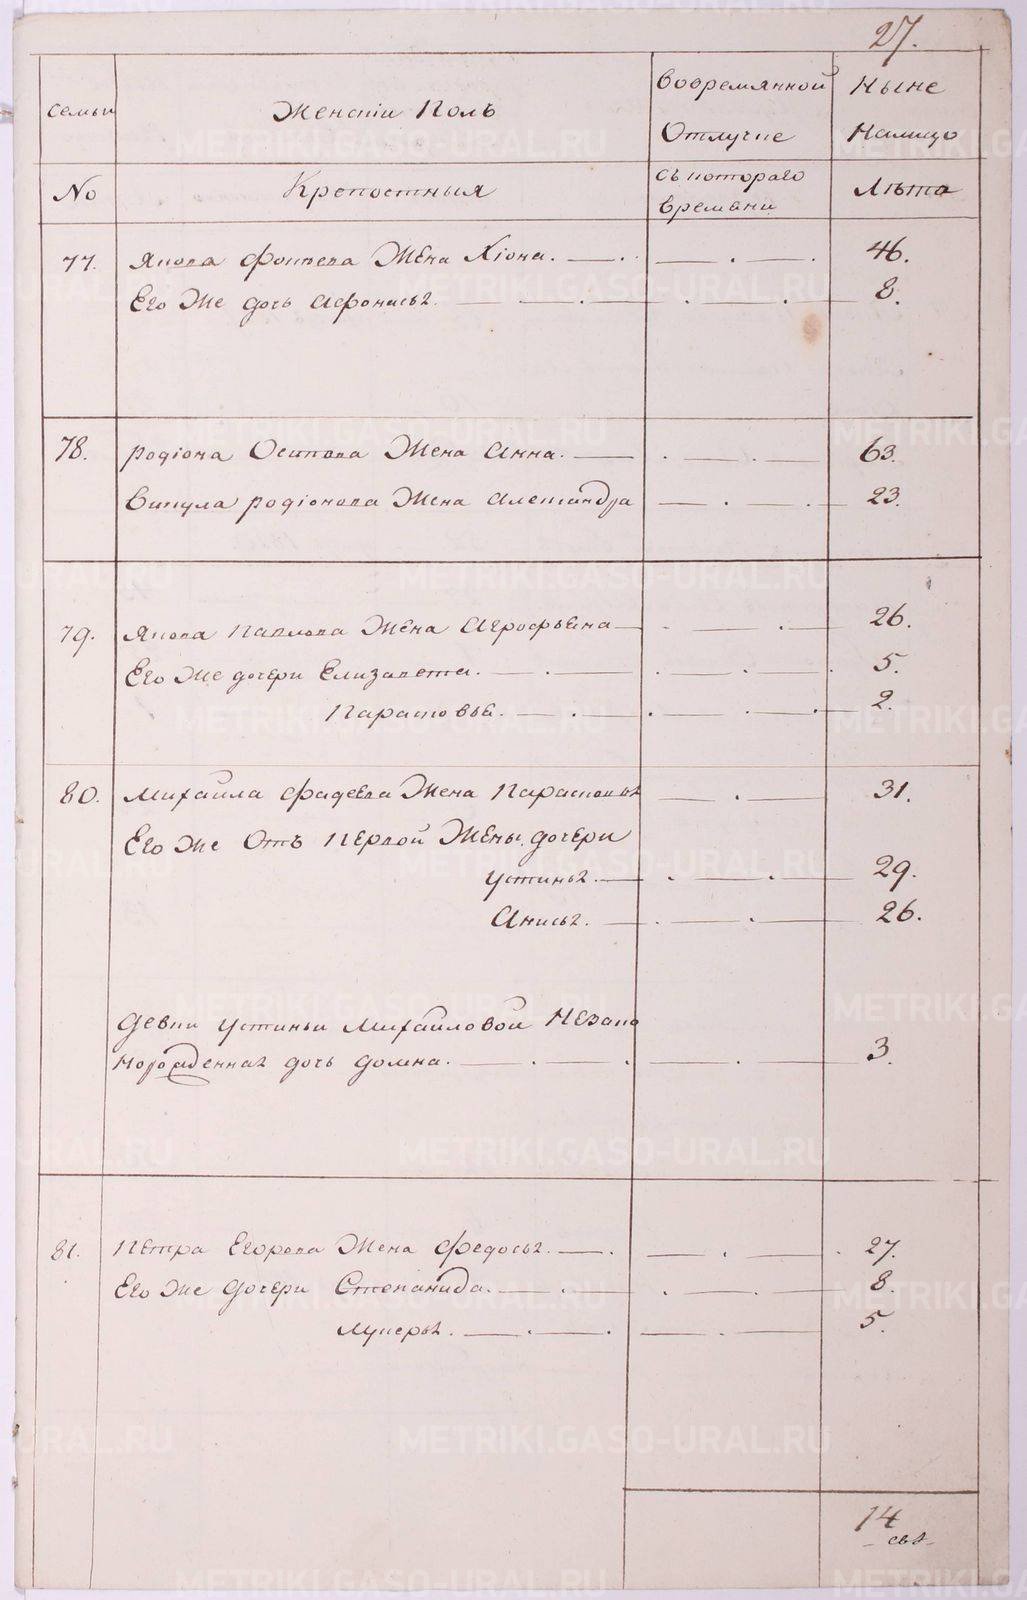 27.
Семьи
Женскiи Полъ
Вовремянной
Ныне
Отлучке
Налицо
No
Крепостныя
Съ котораго
Лѣта
Времени
77. Якова Фокеева Жена Хiона. 46.
Его Же дочь Афонасья. 8.
78. Родiона Осипова Жена Анна. 63.
Викула Родiонова Жена Александра 23.
79. Якова Павлова Жена Агрофѣена 26.
Его Же дочери Елизавета. 5.
Парасковья. 2.
80. Михайла Фадеева Жена Парасковья 31.
Его Же Отъ Первой Жены дочери
Устинья. 29.
Анисья. 26.
Девки Устиньи Михайловой Незако
норожденная дочь Домна. 3.
81. Петра Егорова Жена Федосья. 27.
Его Же Дочери Степанида. 8.
Лукерья. 5.
14
METRIKI.GASO-URAL.RU